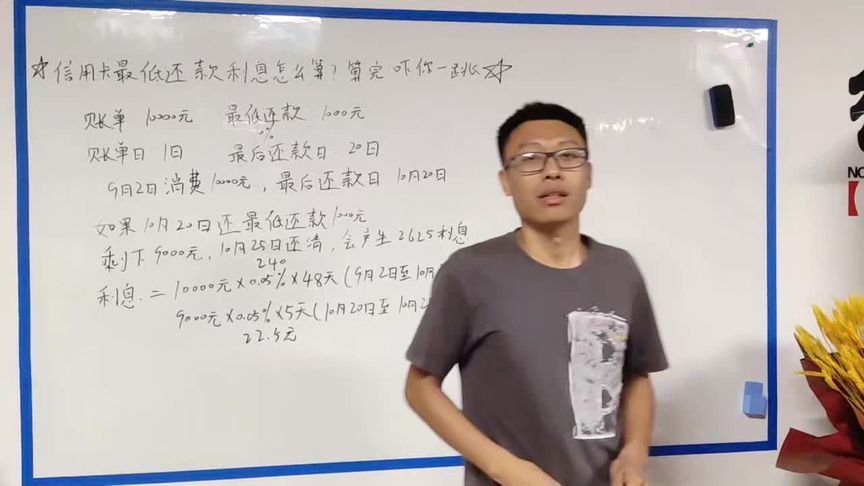 ☆信用卡最低还款利息怎么算?算完吓你一跳☆
账单 10000元 最低还款 1000元
%
账单日 1日 最后还款日 20日
9月2日消费10000元,最后还款日 10月20日
如果10月20日还最低还款1000元
剩下9000元,10月25日还清,会产生2625利息
240
利息 = 10000元×0.05%×48天(9月2日至10月
9000元×0.05%×5天(10月20日至10月2
22.5元
NO